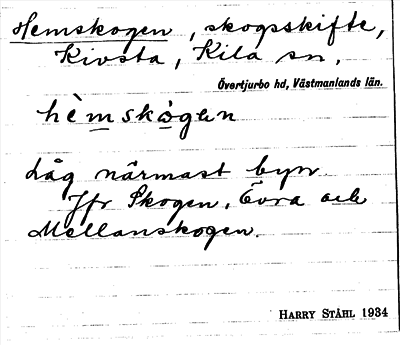 Hemskogen, skogsskifte,
Kivsta, Kila sn,
Övertjurbo hd, Västmanlands län.
hèmskògen
Låg närmast byn
Jfr Skogen, Övra och
Mellanskogen.
HARRY STÅHL 1934